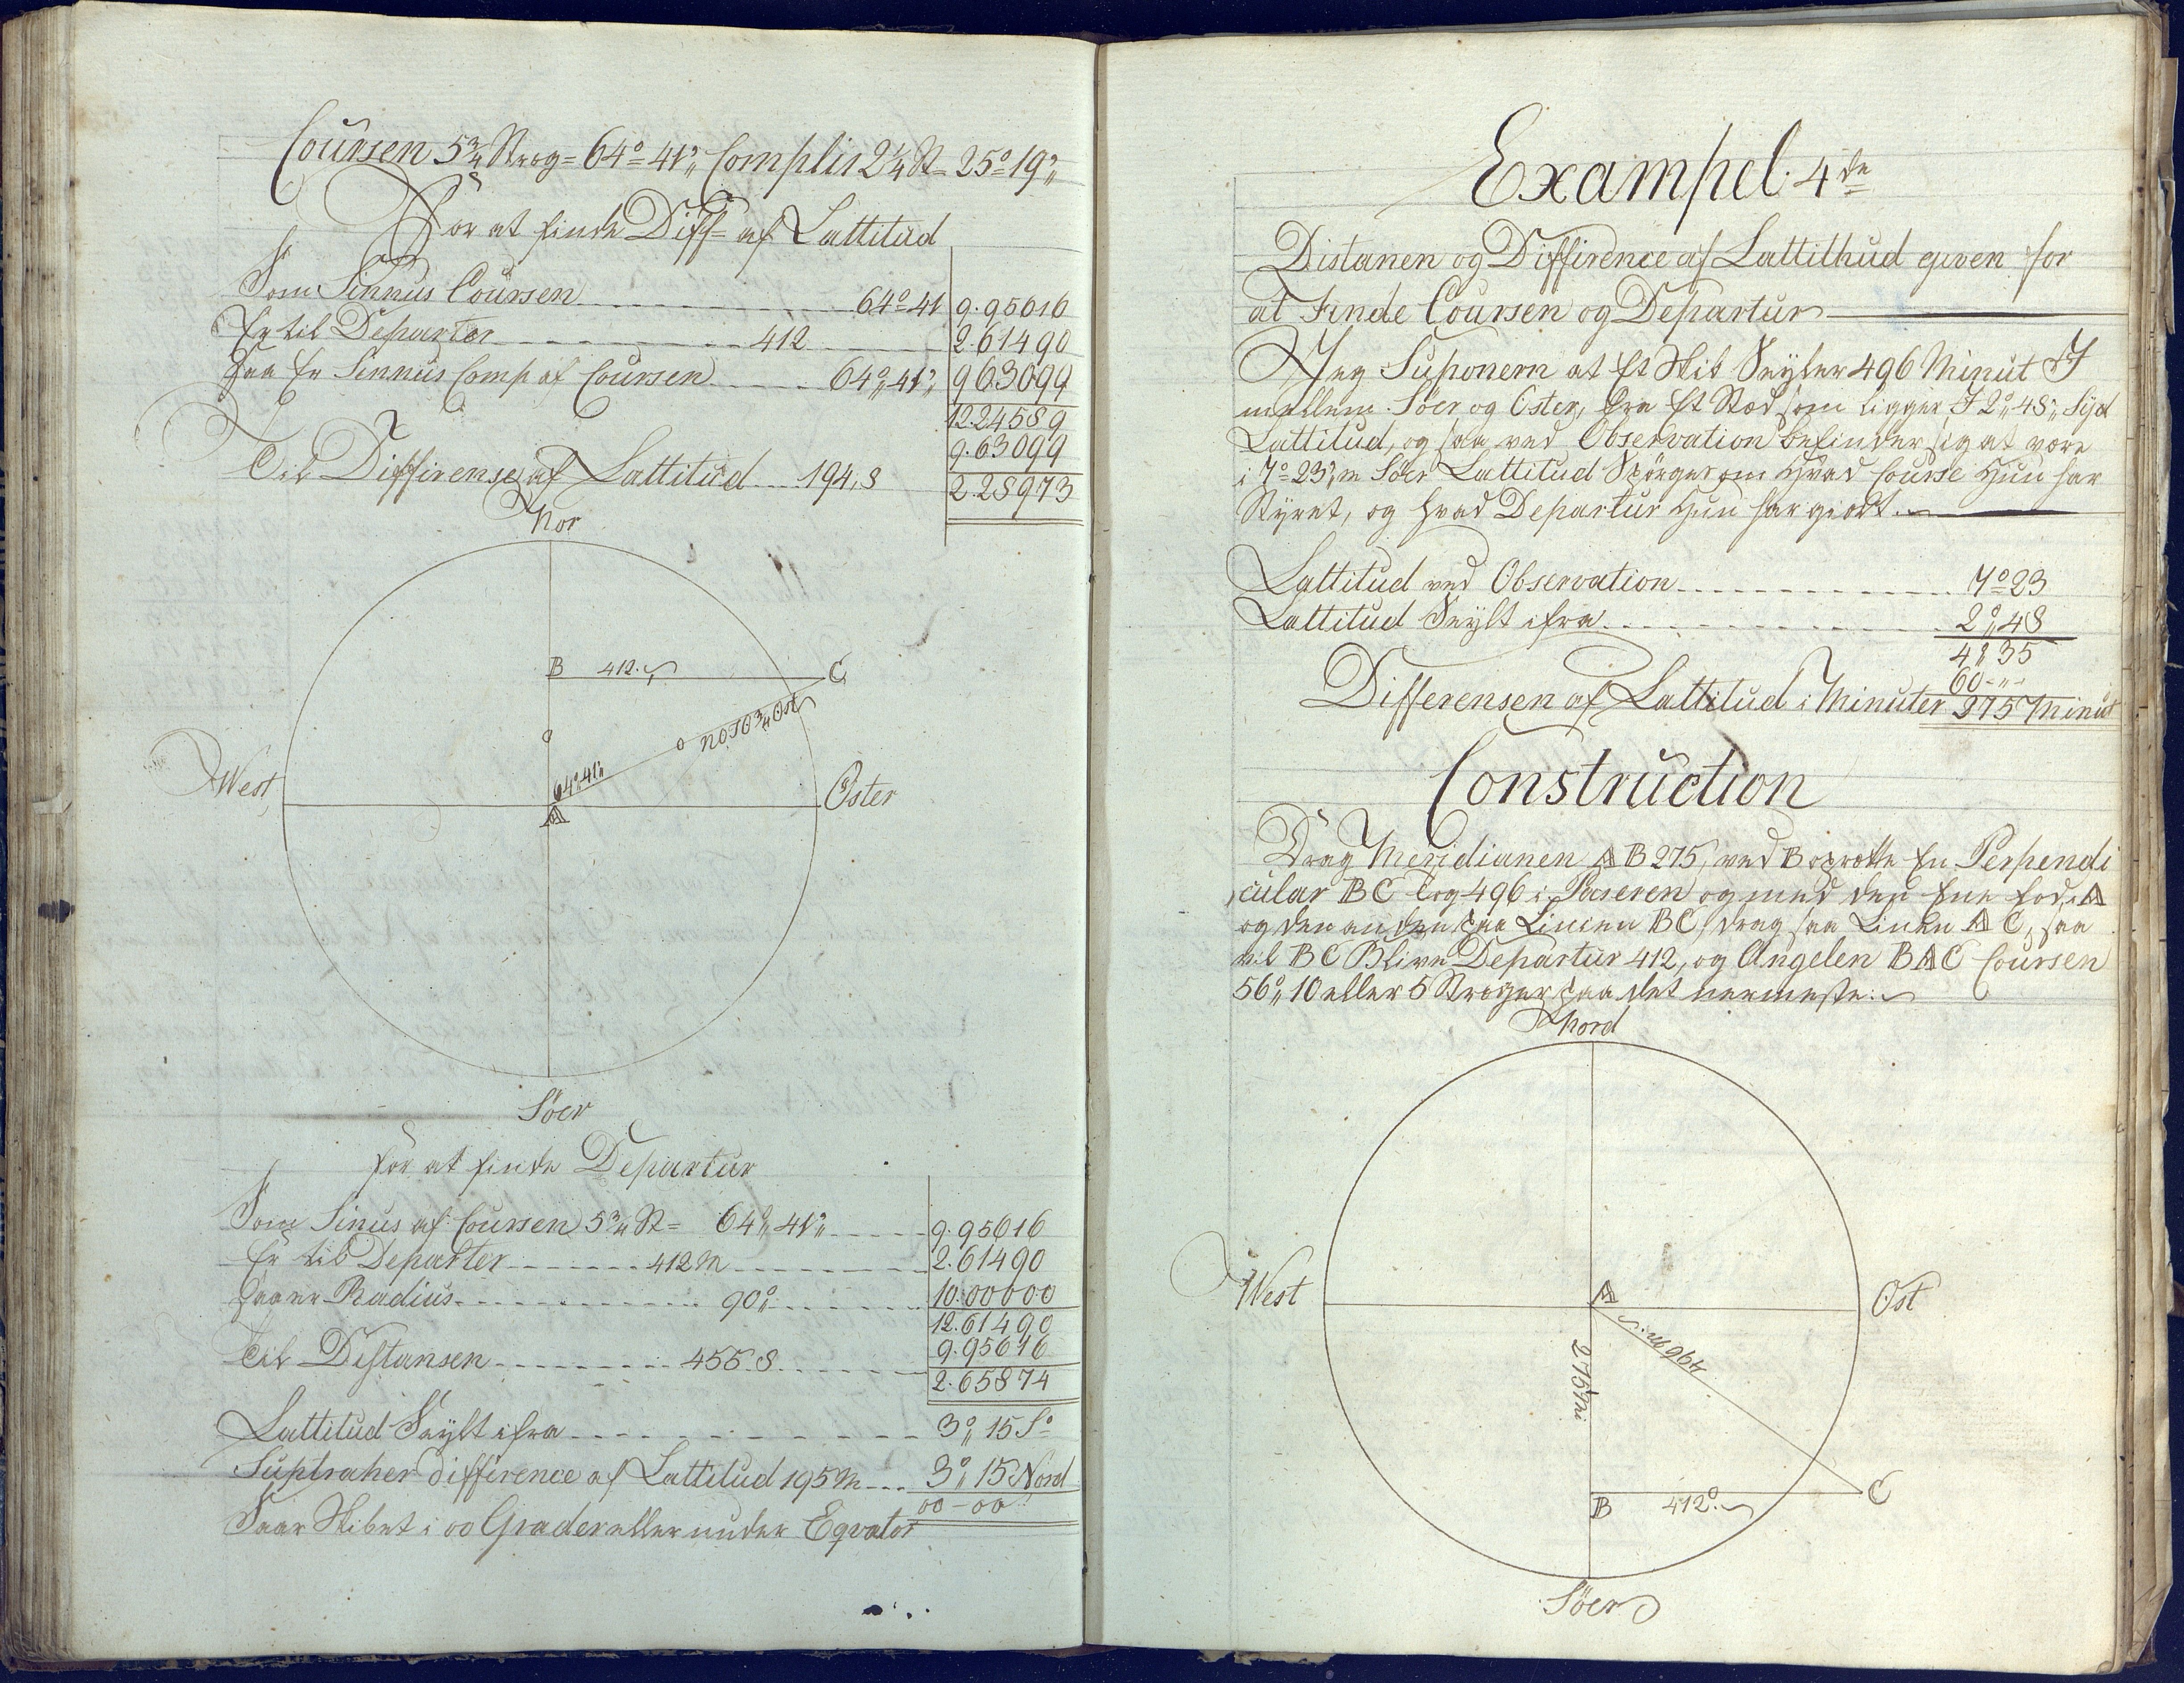 Coursen 5¾ Streg = 64°= 41'„ Complis 2¼ St= 25°= 19'„
For at finde Diff= af Lattitud
Som Sinnus Coursen 64°=41 9.95616
Er til Departer 412 2.61490
Saa Er Sinnus Comp af Coursen 64°„41'„ 9.63099
12.24589
9.63099
Til Diffirense af Lattitud 194,8 2.28973
Nor
B 412. C
NOTO¾Ost
64°41'„
West Oster
A
Söer
For at finde Departur
Som Sinus af Coursen 5¾ St= 64°„41'„ 9.95616
Er til Departer 412 M 2.61490
Saa er Radius 90°„ 10.00000
12.61490
9.95616
Til Distansen 455.8 2.65874
Lattitud Seylt ifra 3°„ 15 S°
Suptraher difference af Lattitud 195 M 3°„ 15 Nord
00 - 00
Saar Skibet i 00 Grader eller under Eqvator
Exampel 4de
Distanen og Diffirence af Lattithud given for
at Finde Coursen og Departur
Jeg Suponern at Et Skib Seyler 496 Minut I
mellem Söer og Oster, fra Et Stæd som ligger I 2°„ 48'„ Syd
Lattitud, og saa ved Observation befinder sig at være
i 7°= 23'„ Söer Lattitud Spörges om Hvad Course Hun har
Styret, og hvad Departur Hun har giort.
Lattitud ved Observation 7°=23
Lattitud Seylt ifra 2°„48
4°„35
60
Differensen af Lattitud i Minuter 275 Minut
Construction
Drag Meridianen AB 275, ved B oprætte En Perpendi
cular BC tag 496 i Paseren og med den Ene fod i A
og den anden paa Linien BC, drag saa Linien A C, saa
vil BC Blive Departur 412, og Angelen BAC Coursen
56°„ 10 eller 5 Streger paa det nermeste.
Nord
West Ost
A
496 M.
275 M.
B 412° C
Söer